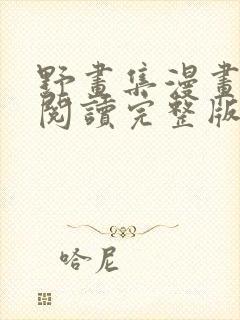 野畫集漫畫
閱讀完整版
哈尼